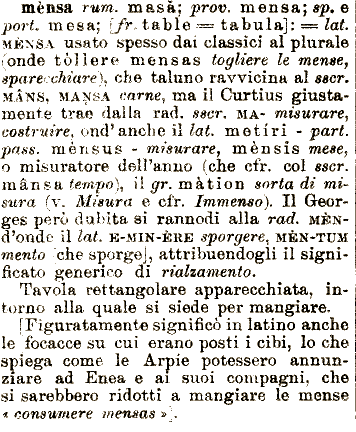 mènsa rum. masă; prov. mensa; sp. e
port. mesa; [fr. table = tabula]: = lat.
MÈNSA usato spesso dai classici al plurale
(onde tòllere mensas togliere le mense,
sparecchiare), che taluno ravvicina al sscr.
MÂNS, MANSA carne, ma il Curtius giusta-
mente trae dalla rad. sscr. MA- misurare,
costruire, ond'anche il lat. metíri - part.
pass. mènsus - misurare, mènsis mese,
o misuratore dell'anno (che cfr. col sscr.
mânsa tempo), il gr. màtion sorta di mi-
sura (v. Misura e cfr. Immenso). Il Geor-
ges però dubita si rannodi alla rad. MÈN-
d'onde il lat. E-MIN-ÈRE sporgere, MÈN-TUM
mento [che sporge], attribuendogli il signi-
ficato generico di rialzamento.
Tavola rettangolare apparecchiata, in-
torno alla quale si siede per mangiare.
[Figuratamente significò in latino anche
le focacce su cui erano posti i cibi, lo che
spiega come le Arpie potessero annun-
ziare ad Enea e ai suoi compagni, che
si sarebbero ridotti a mangiare le mense
« consumere mensas »].